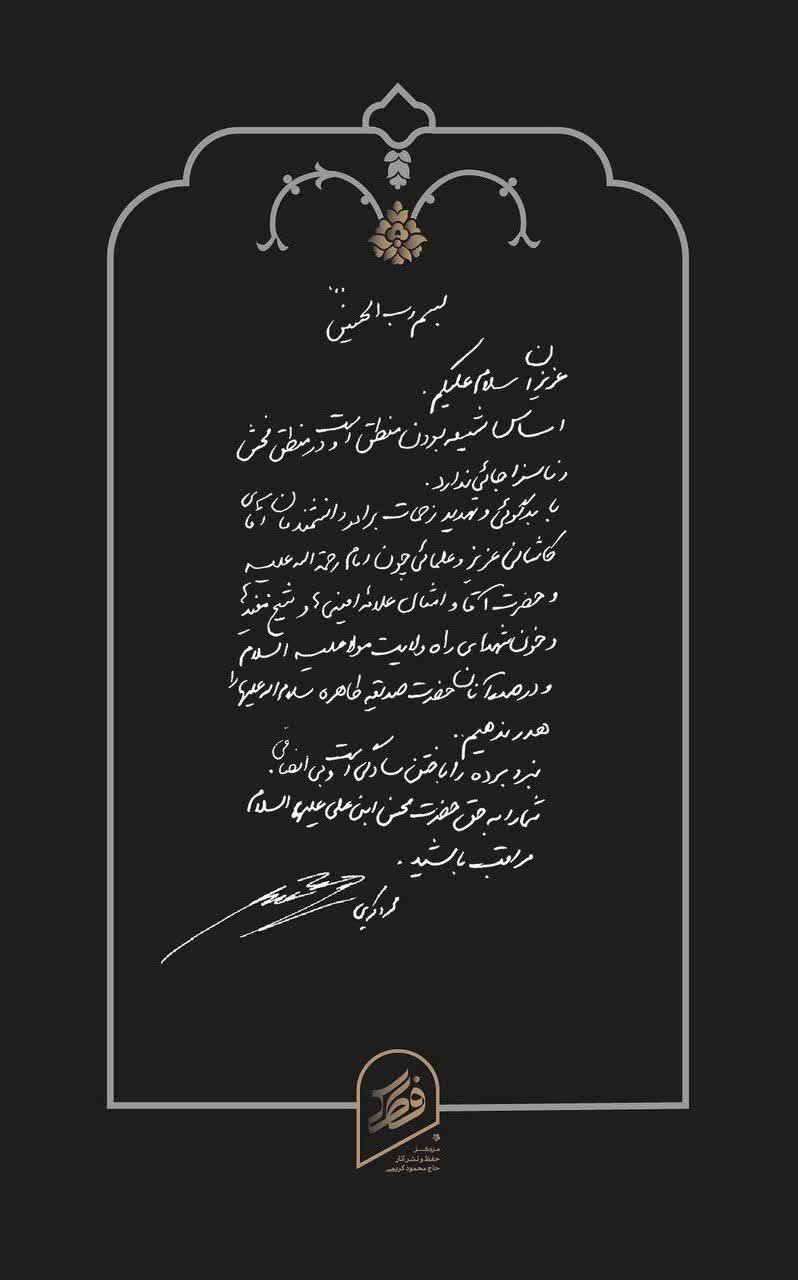 بسم رب الحسین
عزیزان سلام علیکم.
اساس شیعه بودن منطق است و در منطق فحش
و ناسزا جائی ندارد.
با بدگوئی و تهدید زحمات برادر دانشمندمان آقای
کاشانی عزیز و علمائی چون امام رحمة اله علیه
و حضرت آقا و امثال علامه امینی ها و شیخ مفیدها
و خون شهدای راه ولایت مولا علیه السلام
و در صدر آنان حضرت صدیقه طاهره سلام اله علیها را
هدر ندهیم..
نبرد برده را باختن سادگی است و بی انصافی.
شما را به حق حضرت محسن ابن علی علیهما السلام
مراقب باشید.
محمود کریمی
فطرس
مرکز
حفظ و نشر آثار
حاج محمود کریمی